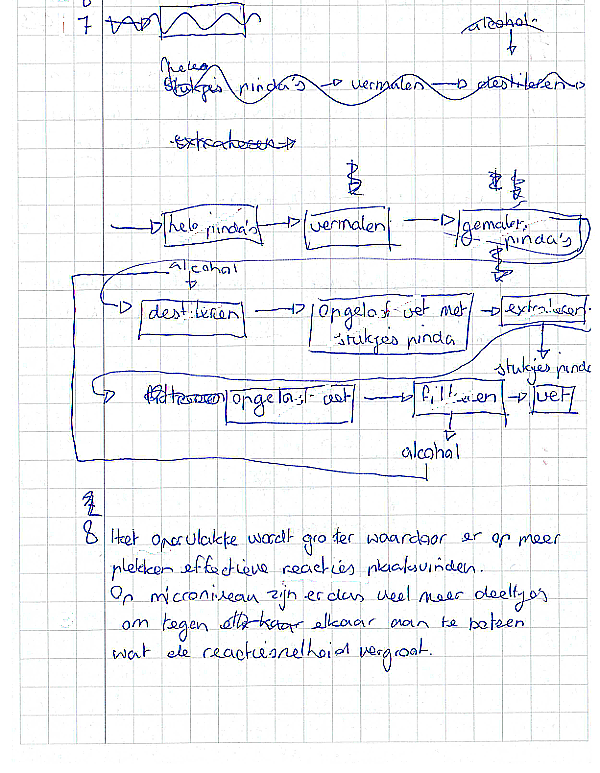 7
alcohol
hele
stukjes pinda's → vermalen → destileren →
extraheren →
→ hele pinda's → vermalen → gemalen pinda's
alcohol
→ destileren → opgelost vet met stukjes pinda → extraheren
stukjes pinda
→ opgelost vet → filtreren → vet
alcohol
8 Het oppervlakte wordt groter waardoor er op meer
plekken effectieve reacties plaatsvinden.
Op microniveau zijn er dus veel meer deeltjes
om tegen elkaar elkaar aan te botsen
wat de reactiesnelheid vergroot.